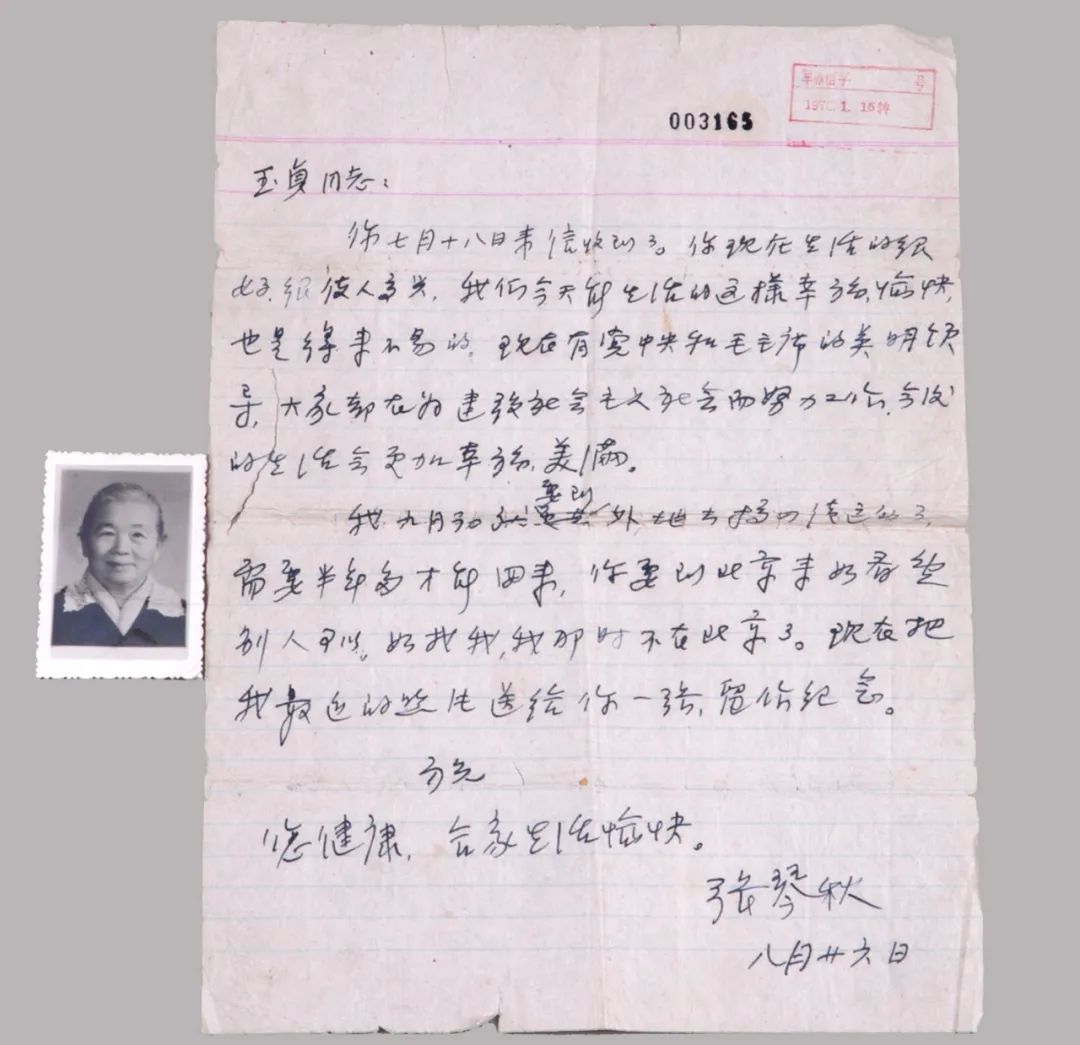 003165
号
197 . 1. 16转
玉贞同志：
你七月十八日来信收到了。你现在生活的很
好，很使人高兴，我们今天能生活的这样幸福、愉快，
也是得来不易的。现在有党中央和毛主席的英明领
导，大家都在为建设社会主义社会而努力工作，今后
的生活会更加幸福、美满。
要到
我九月初 外地去搞四清运动了，
需要半年多才能回来，你要到北京来如看望
别人可以。如找我，我那时不在北京了。现在把
我最近的照片送给你一张，留作纪念。
祝
您健康，合家生活愉快。
张琴秋
八月廿六日